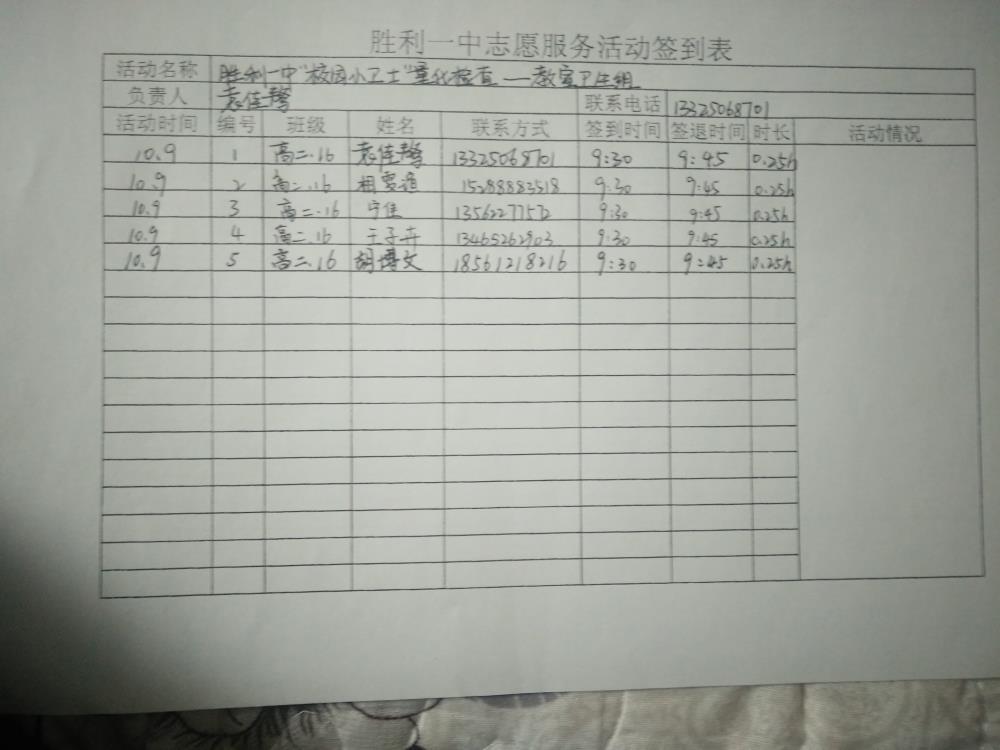 胜利一中志愿服务活动签到表
活动名称 胜利一中"校园小卫士"量化检查—教室卫生组
负责人 袁佳馨 联系电话 13325068701
活动时间 编号 班级 姓名 联系方式 签到时间 签退时间 时长 活动情况
10.9 1 高二.16 袁佳馨 13325068701 9:30 9:45 0.25h
10.9 2 高二.16 15288883518 9:30 9:45 0.25h
10.9 3 高二.16 宁佳 13562277572 9:30 9:45 0.25h
10.9 4 高二.16 王子卉 13465262903 9:30 9:45 0.25h
10.9 5 高二.16 胡博文 18561218216 9:30 9:45 0.25h